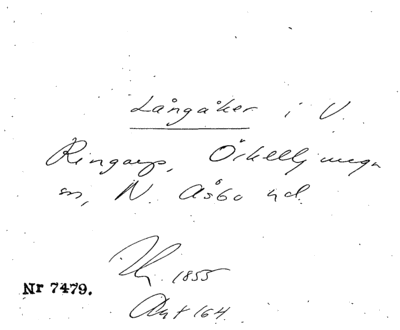 Långåker i V.
Ringarp, Örkelljunga
sn, N. Åsbo hd.
1855
Nr 7479.
Akt 164